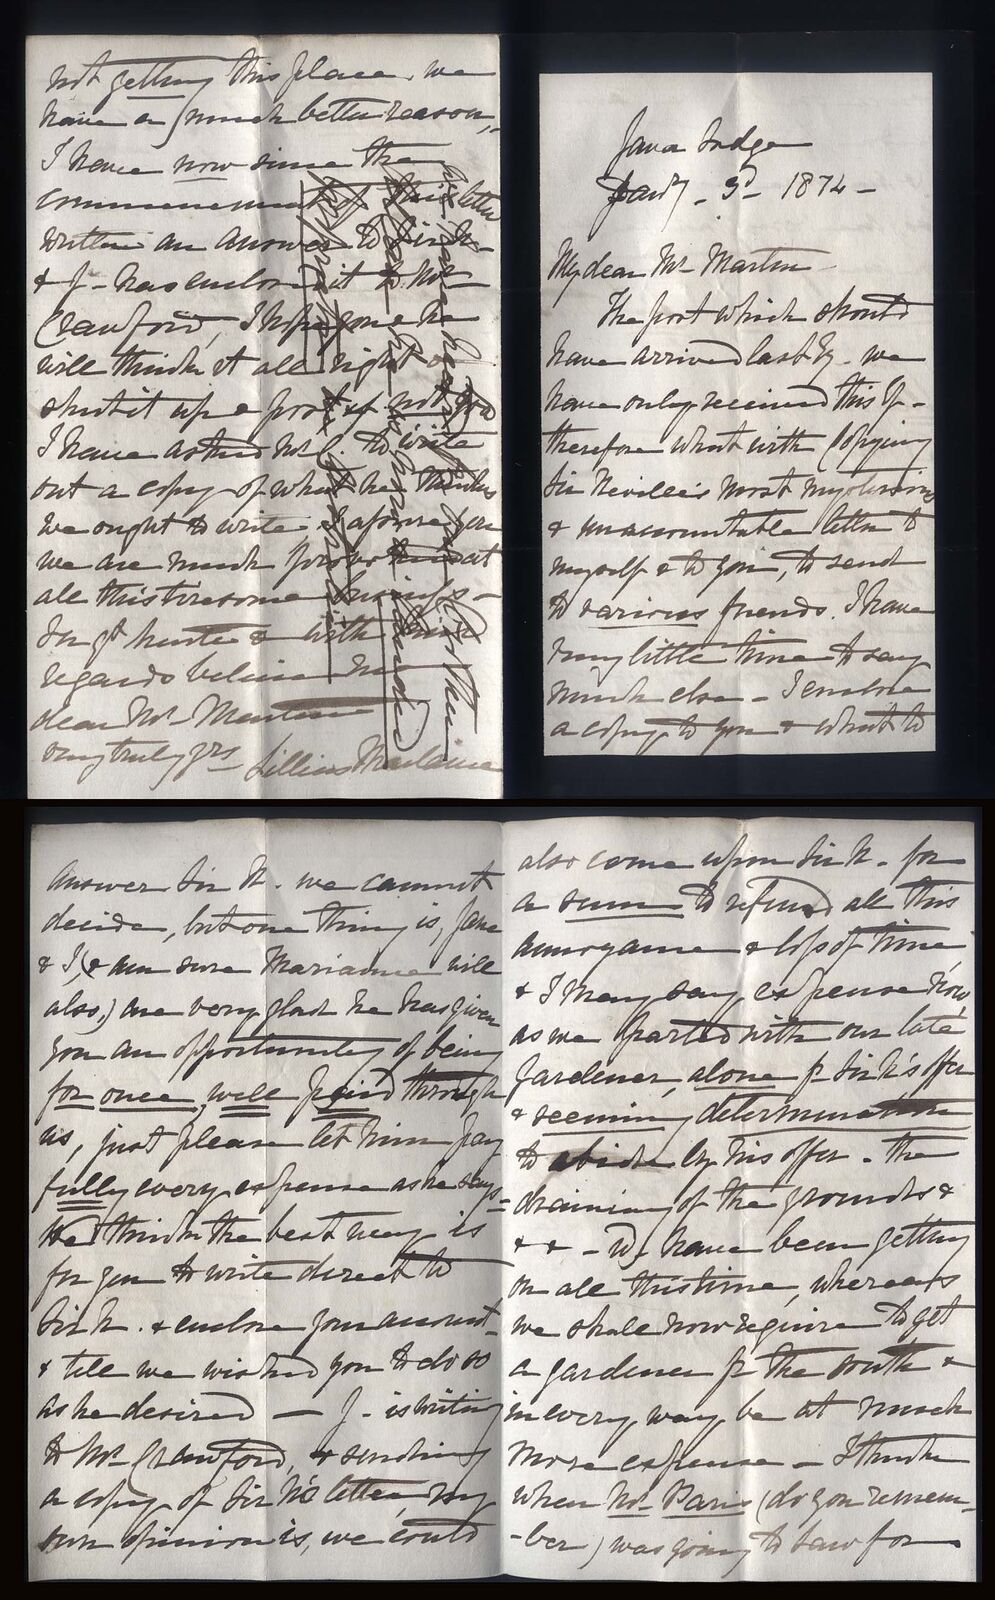 Java Lodge
Jany - 3d - 1874 -
My dear Mr Martin -
The post which should
have arrived last Ey. we
have only received this Ey -
therefore what with copying
Sir Neville's most mysterious
& unaccountable letter to
myself & to you, to send
to various friends. I have
very little time to say
much else - I enclose
a copy to you & what to
answer Sir N. we cannot
decide, but one thing is, Jane
& I, (& am sure Marianne will
also,) are very glad he has given
you an opportunity of being
for once well paid through
us, just please let him pay
fully every expense as he says -
He thinks the best way is
for you to write direct to
Sir N. & enclose your account
& tell we wished you to do so
as he desired - J - is writing
to Mr Crawford, & sending
a copy of Sir N's letter, my
own opinion is, we could
also come upon Sir N. for
a sum to refund all this
annoyance & loss of time
& I may say, expense now,
as we parted with our late
gardener, alone fr Sir N's offer
& seeming determination
to abide by his offer - the
draining of the grounds &
& & - Wd have been getting
on all this time, whereas
we shall now require to get
a gardener fr the south &
in every way be at much
more expense - I think
when Mr Paris (do you remem-
-ber) was going to law for
not getting this place, we
have a much better reason,
I have now since the
commencement of this letter
written an answer to Sir N -
& J - has enclosed it to Mr
Crawford, I hope he
will think it all right &
shut it up & post if not
I have asked Mr C. to write
out a copy of what he thinks
we ought to write I assure you
we are much
all this tiresome business -
In gt haste & with
regards believe me
dear Mr Martin
very truly yrs Lillias Maclaine